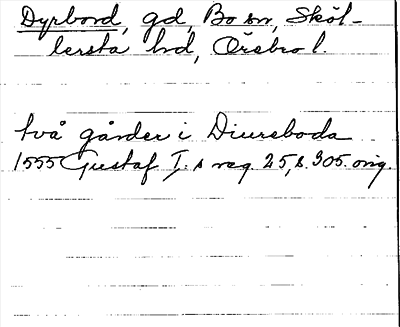 Dyrbord, gd, Bo sn, Sköl-
lersta hd, Örebro l.
två gårder i Diureboda
1555 Gustaf I:s reg. 25, s. 305. orig.